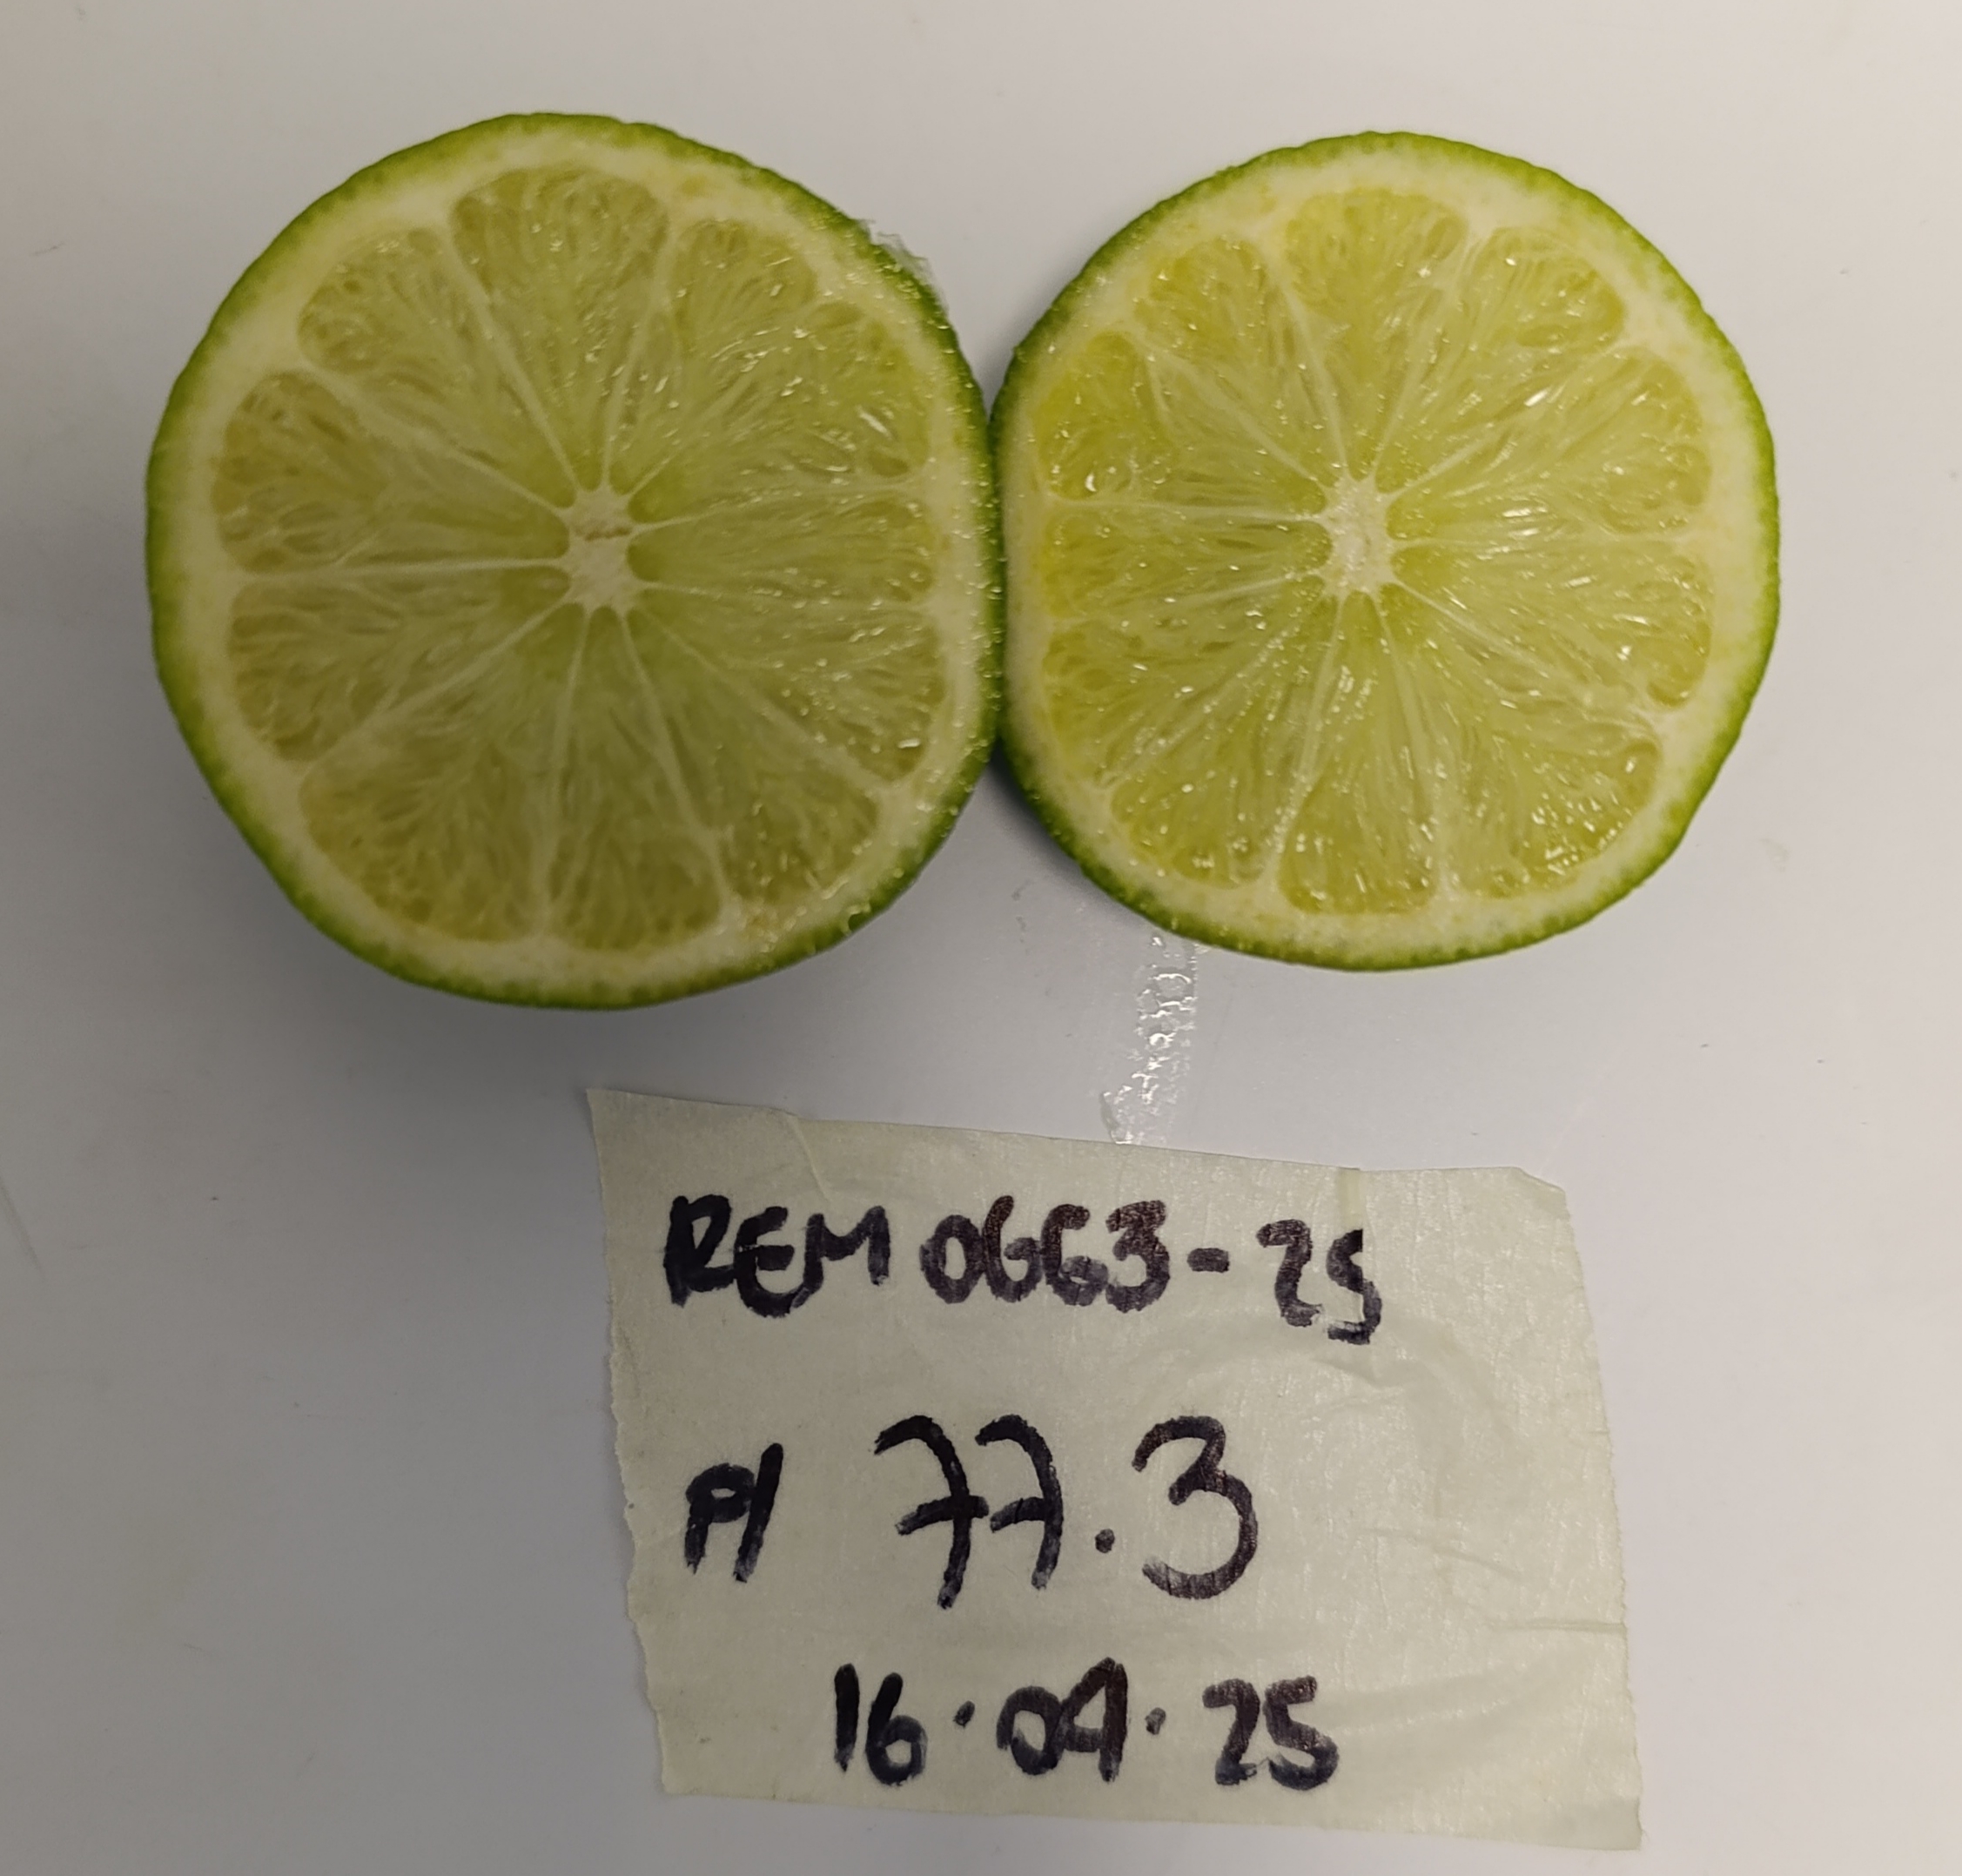 REM 0663-25
P/ 77.3
16.04.25